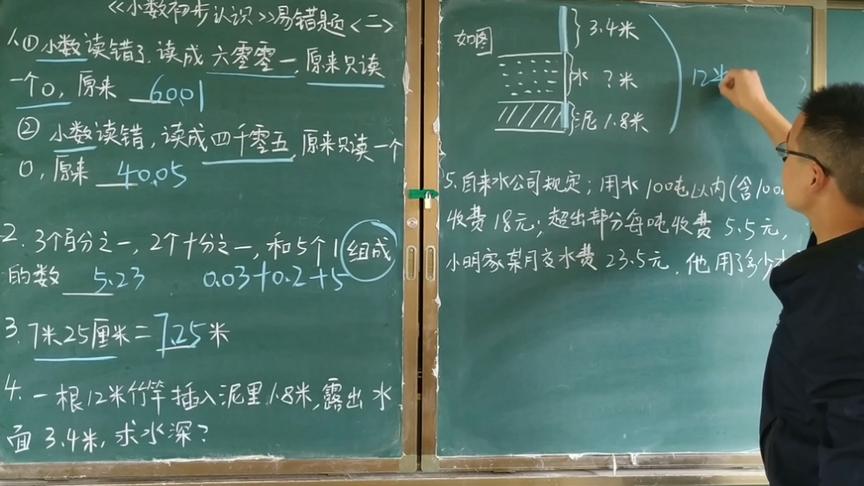 《小数初步认识》易错题<二>
1.①小数读错了.读成六零零一,原来只读
一个0,原来 60.01
②小数读错,读成四千零五,原来只读一个
0,原来 40.05
2. 3个百分之一,2个十分之一,和5个1组成
的数 5.23 0.03+0.2+5
3. 7米25厘米=7.25米
4. 一根12米竹竿插入泥里1.8米,露出水
面3.4米,求水深?
如图
3.4米
水 ?米
泥1.8米
12米
5.自来水公司规定;用水100吨以内(含100
收费18元;超出部分每吨收费5.5元,
小明家某月交水费23.5元.他用了多少水